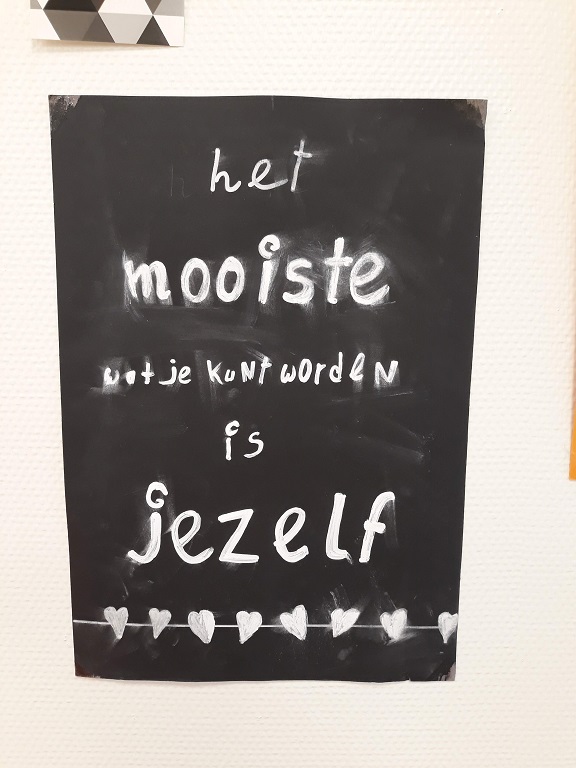 het
mooiste
wat je kunt worden
is
jezelf